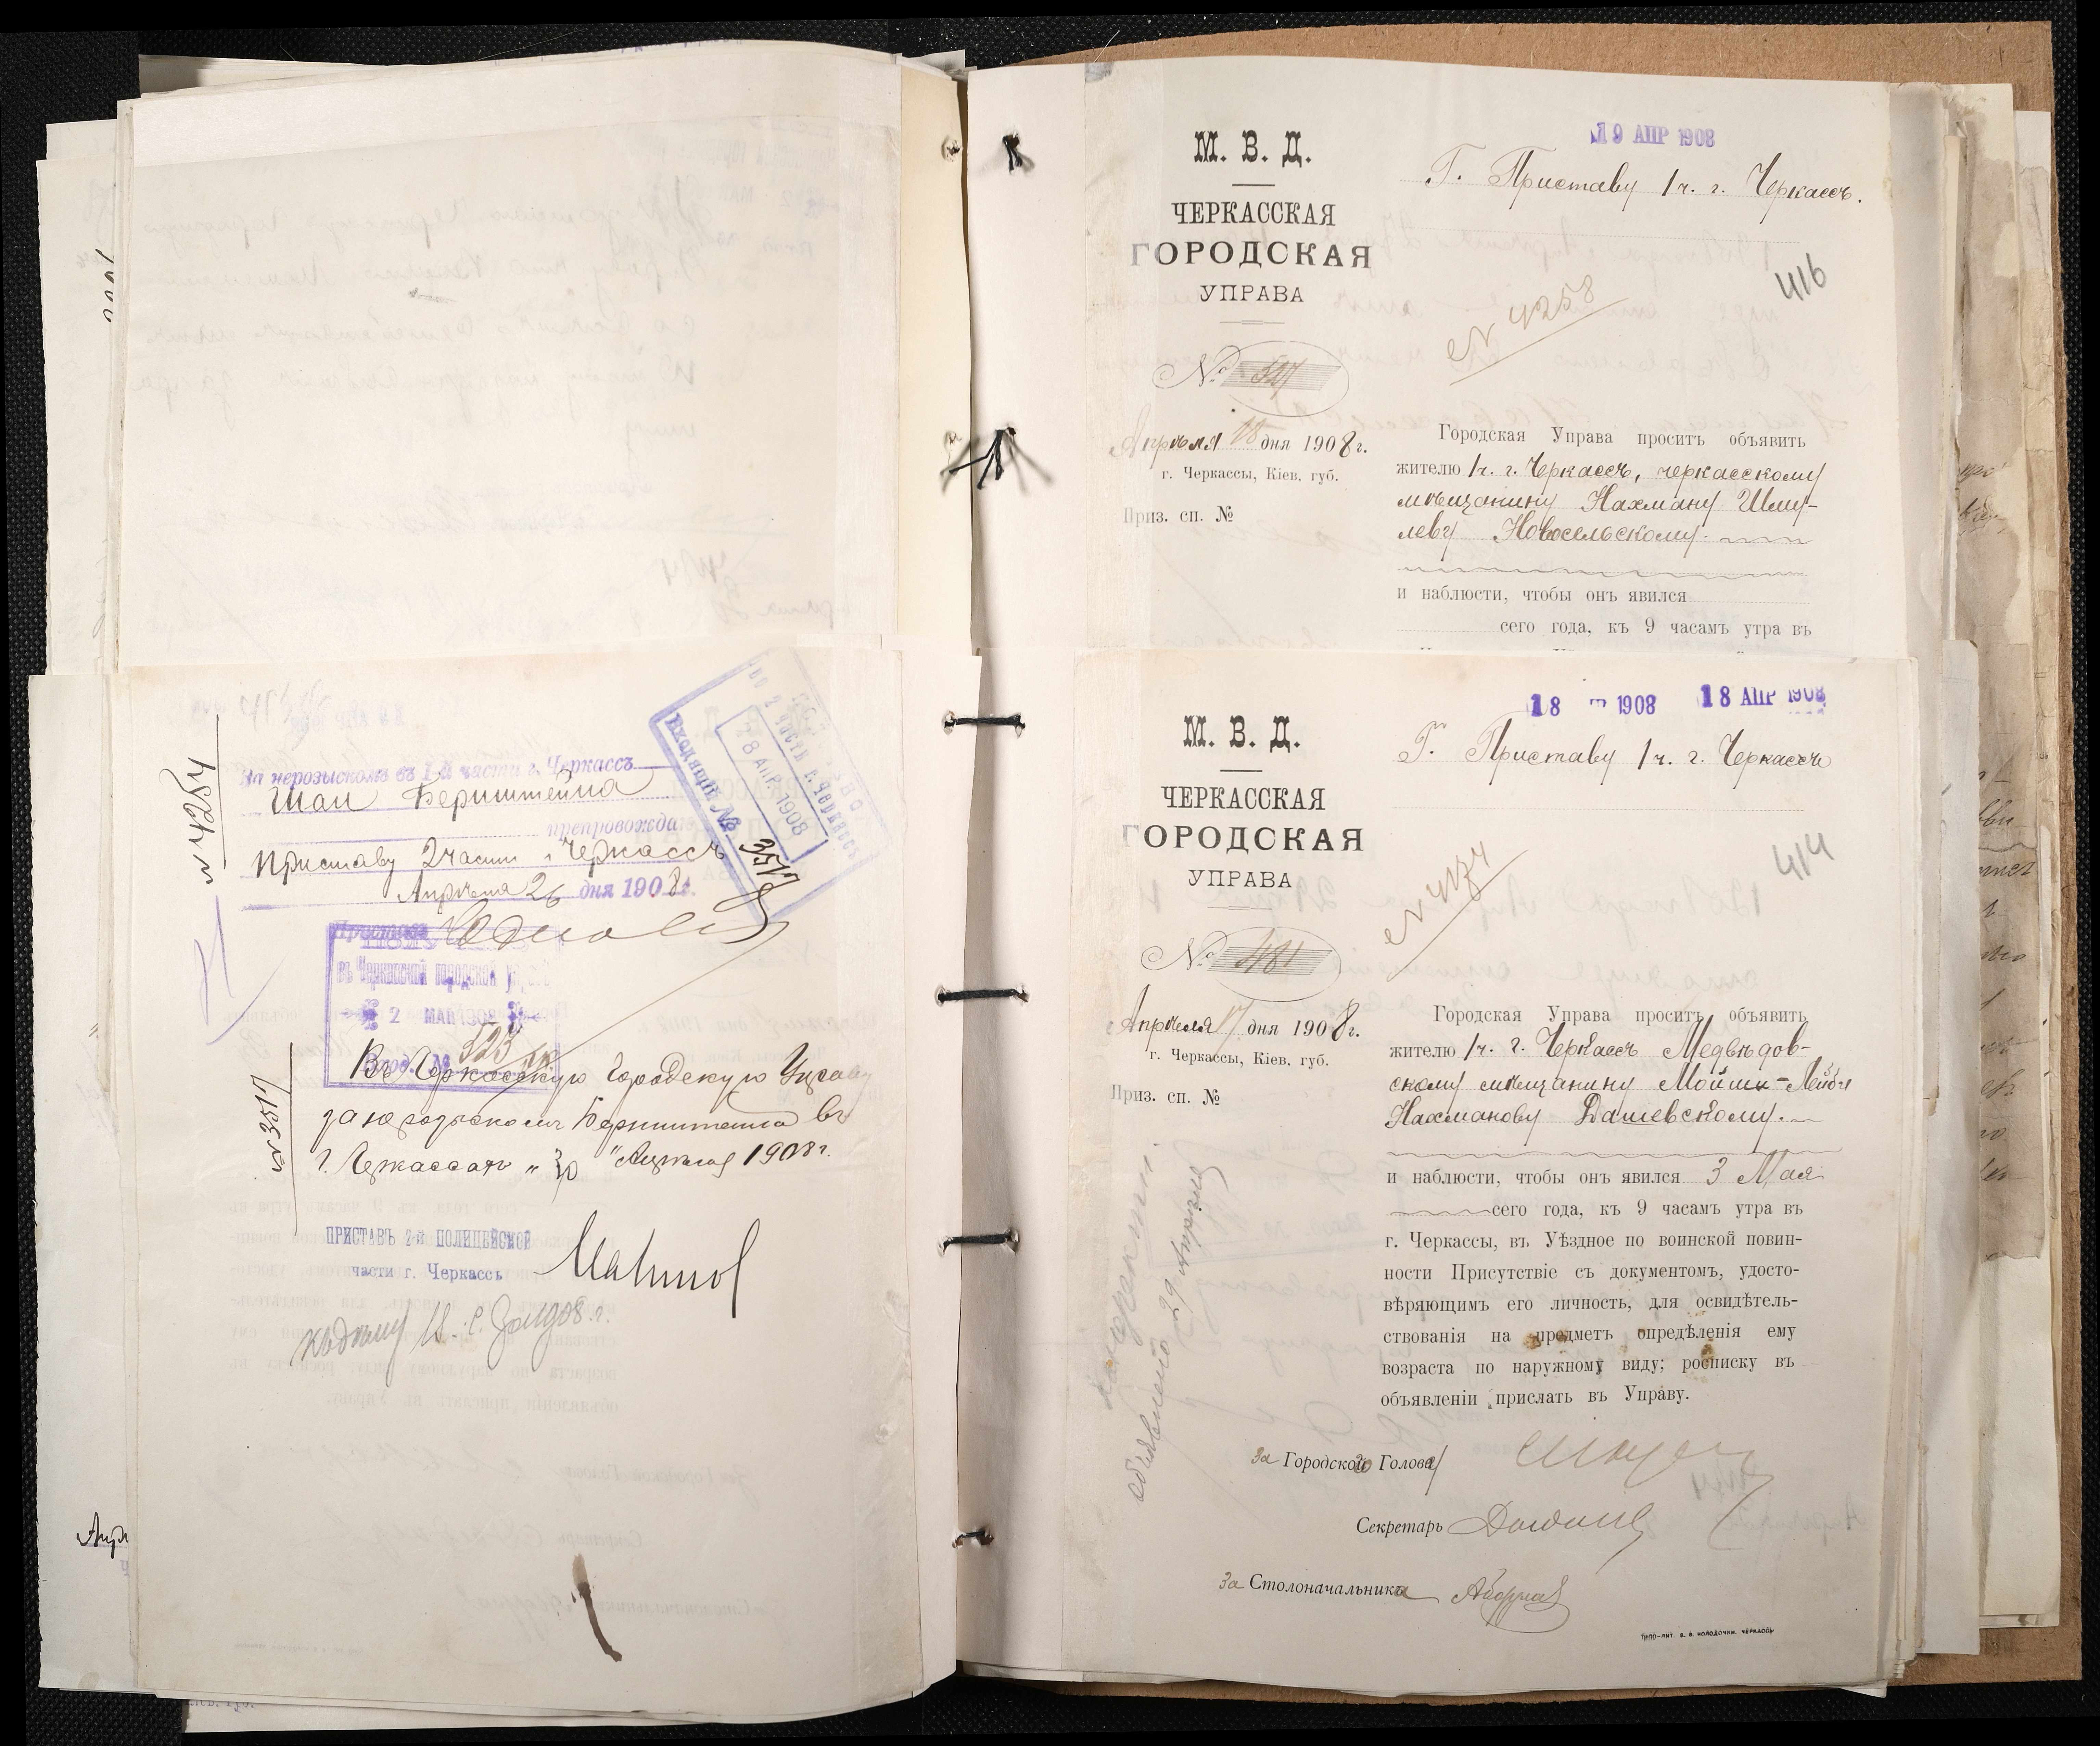 № 4254
За нерозыскомъ въ 1-й части г. Черкассъ
Шаи Бернштейна
препровожда
Приставу 2 части г. Черкассъ
Апрѣля 26 дня 1908 г.
Приставъ
Входящій № 3517
8 АПР. 1908
2 части г. Черкассъ
въ Черкасской городской
2 МАЯ 1908
Вход. № 523
Въ Черкасскую Городскую Управу
за нерозыскомъ Бернштейна въ
г. Черкассахъ „30" Апрѣля 1908 г.
№ 3517
ПРИСТАВЪ 2-й ПОЛИЦЕЙСКОЙ
части г. Черкассъ
19 АПР 1908
М. В. Д.
ЧЕРКАССКАЯ
ГОРОДСКАЯ
УПРАВА
Г. Приставу 1 ч. г. Черкассъ.
416
№ 4258
№ 527
Апрѣля 18 дня 1908 г.
г. Черкассы, Кіев. губ.
Приз. сп. №
Городская Управа проситъ объявить
жителю 1 ч. г. Черкассъ, черкасскому
мѣщанину Нахману Шму-
леву Новосельскому.
и наблюсти, чтобы онъ явился
сего года, къ 9 часамъ утра въ
18 1908 18 АПР 1908
М. В. Д.
ЧЕРКАССКАЯ
ГОРОДСКАЯ
УПРАВА
Г. Приставу 1 ч. г. Черкассъ
414
№ 4174
№ 481
Апрѣля 17 дня 1908 г.
г. Черкассы, Кіев. губ.
Приз. сп. №
Городская Управа проситъ объявить
жителю 1 ч. г. Черкассъ Медвѣдов-
скому мѣщанину Мойшѣ-Лейбѣ
Нахманову Дашевскому.
и наблюсти, чтобы онъ явился 3 Мая
сего года, къ 9 часамъ утра въ
г. Черкассы, въ Уѣздное по воинской повин-
ности Присутствіе съ документомъ, удосто-
вѣряющимъ его личность, для освидѣтель-
ствованія на предметъ опредѣленія ему
возраста по наружному виду; росписку въ
объявленіи прислать въ Управу.
объявлено 29 Апрѣля
За Городского Голову
Секретарь
За Столоначальника